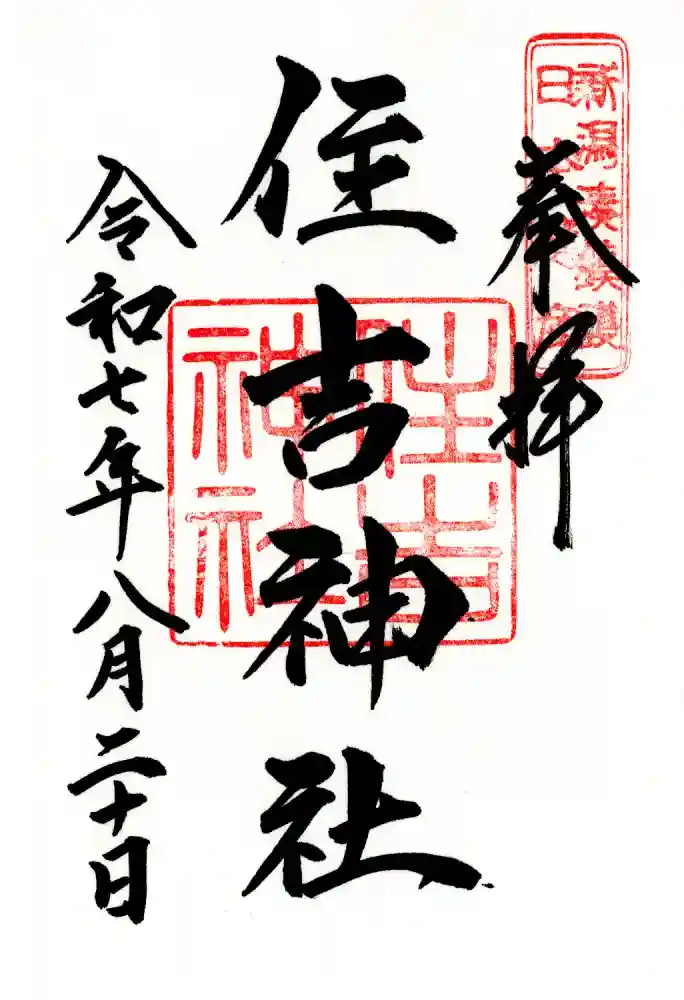 奉拝
新潟湊鎮護
日
住吉神社
住吉
神社
令和七年八月二十日